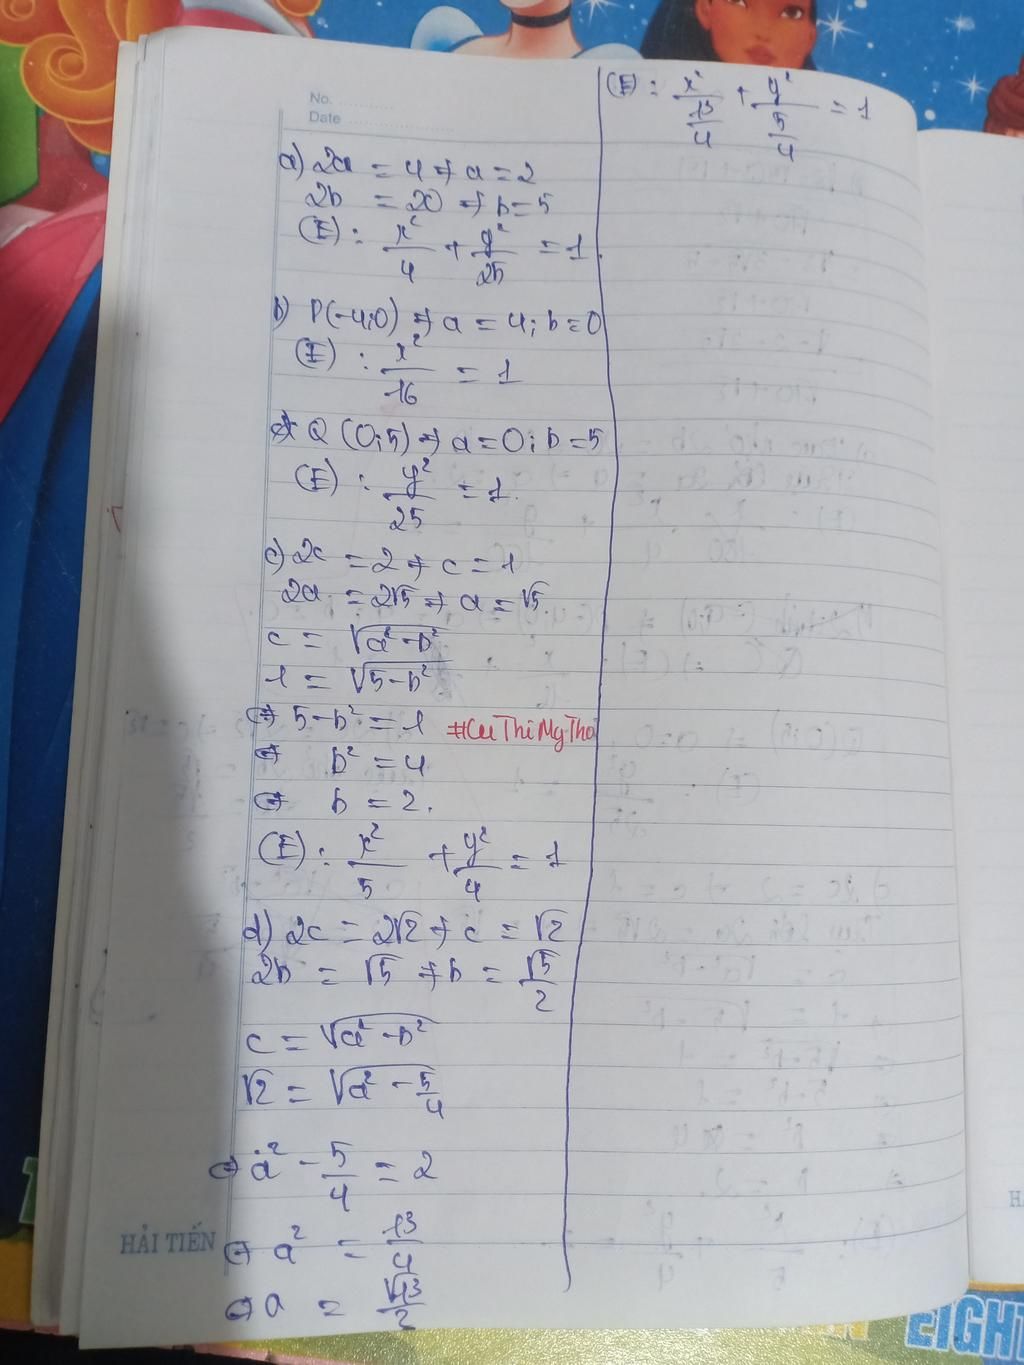 No. ............
Date ......................
a) 2a = 4 ⇒ a = 2
2b = 20 ⇒ b = 5
(E) : x²/4 + y²/25 = 1.
b) P(-4;0) ⇒ a = 4; b = 0
(E) : x²/16 = 1
Q (0;5) ⇒ a = 0; b = 5
(E) : y²/25 = 1.
c) 2c = 2 ⇒ c = 1
2a = 2√5 ⇒ a = √5.
c = √(a² - b²)
1 = √(5 - b²)
⇔ 5 - b² = 1
#CuThiMyTho
⇔ b² = 4
⇔ b = 2.
(E) : x²/5 + y²/4 = 1
d) 2c = 2√2 ⇒ c = √2
2b = √5 ⇒ b = √5/2
c = √(a² - b²)
√2 = √(a² - 5/4)
⇔ a² - 5/4 = 2
⇔ a² = 13/4
⇔ a = √13/2
(E) : x²/(13/4) + y²/(5/4) = 1
HẢI TIẾN
EIGHT